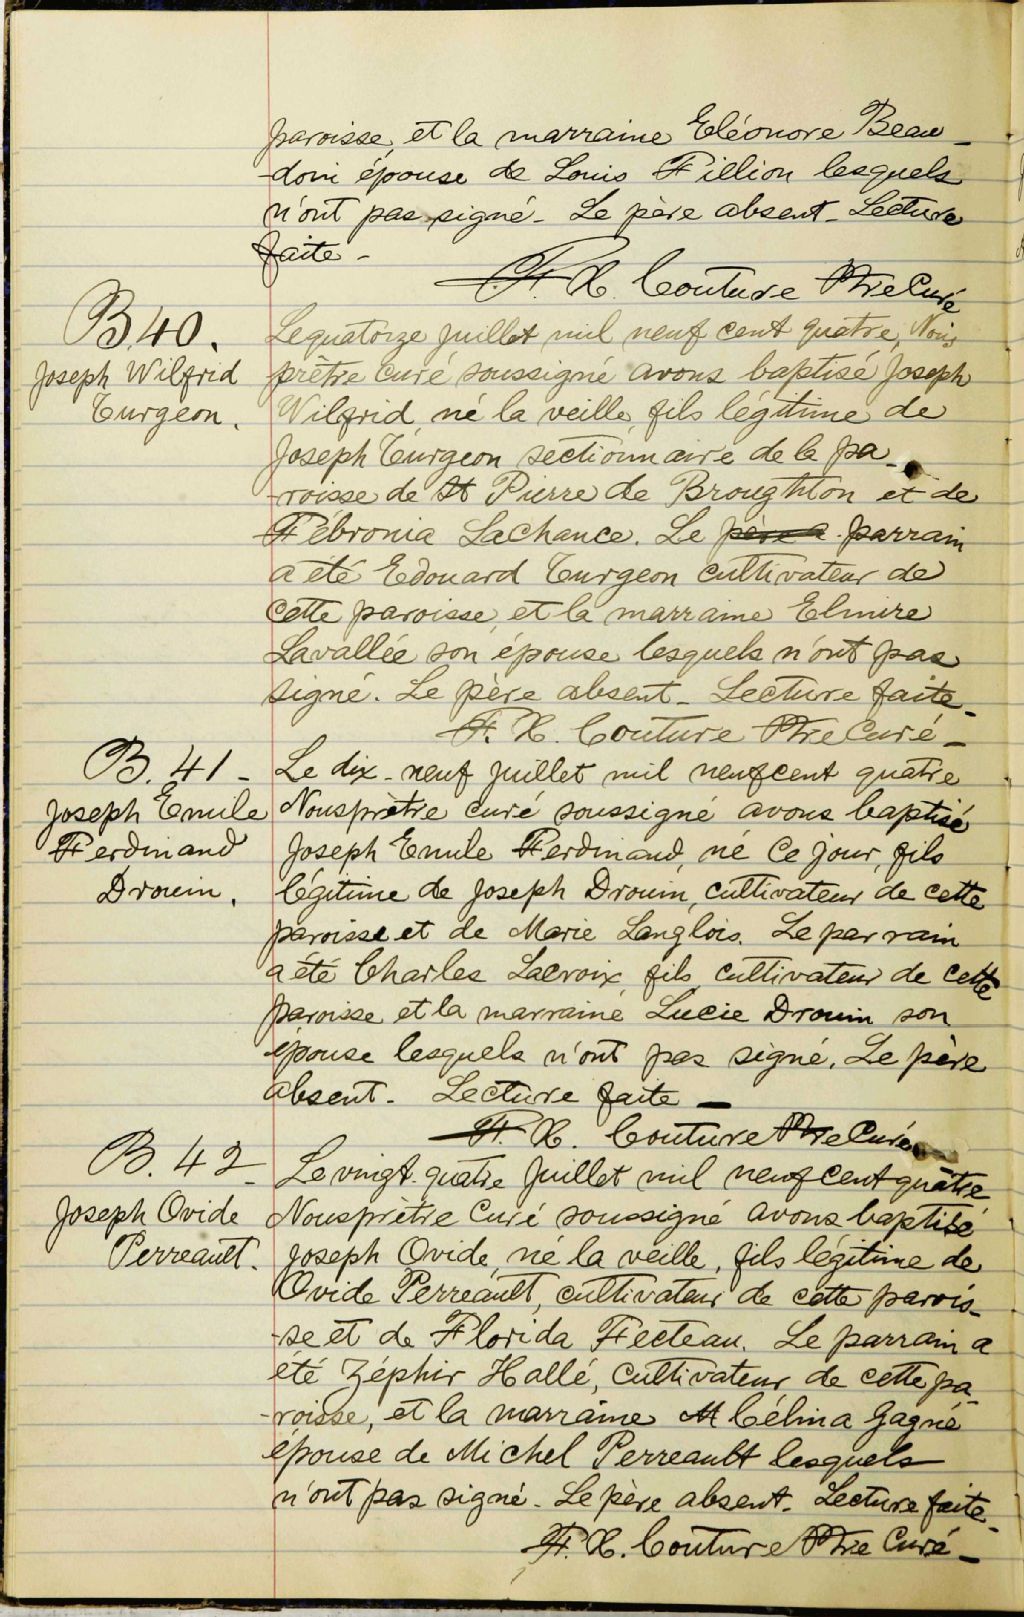 paroisse, et la marraine Eléonore Beau-
-doin épouse de Louis Fillion lesquels
n'ont pas signé - Le père absent - Lecture
faite -
F. X. Couture Ptre Curé
B 40.
Joseph Wilfrid
Turgeon.
Le quatorze juillet mil neuf cent quatre, Nous
prêtre curé soussigné avons baptisé Joseph
Wilfrid, né la veille, fils légitime de
Joseph Turgeon sectionnaire de la pa-
-roisse de St Pierre de Broughton et de
Fébronia Lachance. Le père a parrain
a été Edouard Turgeon cultivateur de
cette paroisse, et la marraine Elmire
Lavallée son épouse lesquels n'ont pas
signé. Le père absent - Lecture faite -
F. X. Couture Ptre Curé -
B. 41 -
Joseph Emile
Ferdinand
Drouin.
Le dix-neuf juillet mil neuf cent quatre
Nous prêtre curé soussigné avons baptisé
Joseph Emile Ferdinand, né ce jour, fils
légitime de Joseph Drouin, cultivateur de cette
paroisse et de Marie Langlois. Le parrain
a été Charles Lacroix, fils, cultivateur de cette
paroisse et la marraine Lucie Drouin son
épouse lesquels n'ont pas signé. Le père
absent. Lecture faite -
F. X. Couture Ptre Curé
B. 42 -
Joseph Ovide
Perreault.
Le vingt-quatre Juillet mil neuf cent quatre
Nous prêtre Curé soussigné avons baptisé
Joseph Ovide, né la veille, fils légitime de
Ovide Perreault, cultivateur de cette parois-
-se et de Florida Fecteau. Le parrain a
été Zéphir Hallé, cultivateur de cette pa-
-roisse, et la marraine M Célina Gagné
épouse de Michel Perreault lesquels
n'ont pas signé - Le père absent - Lecture faite -
F. X. Couture Ptre Curé -